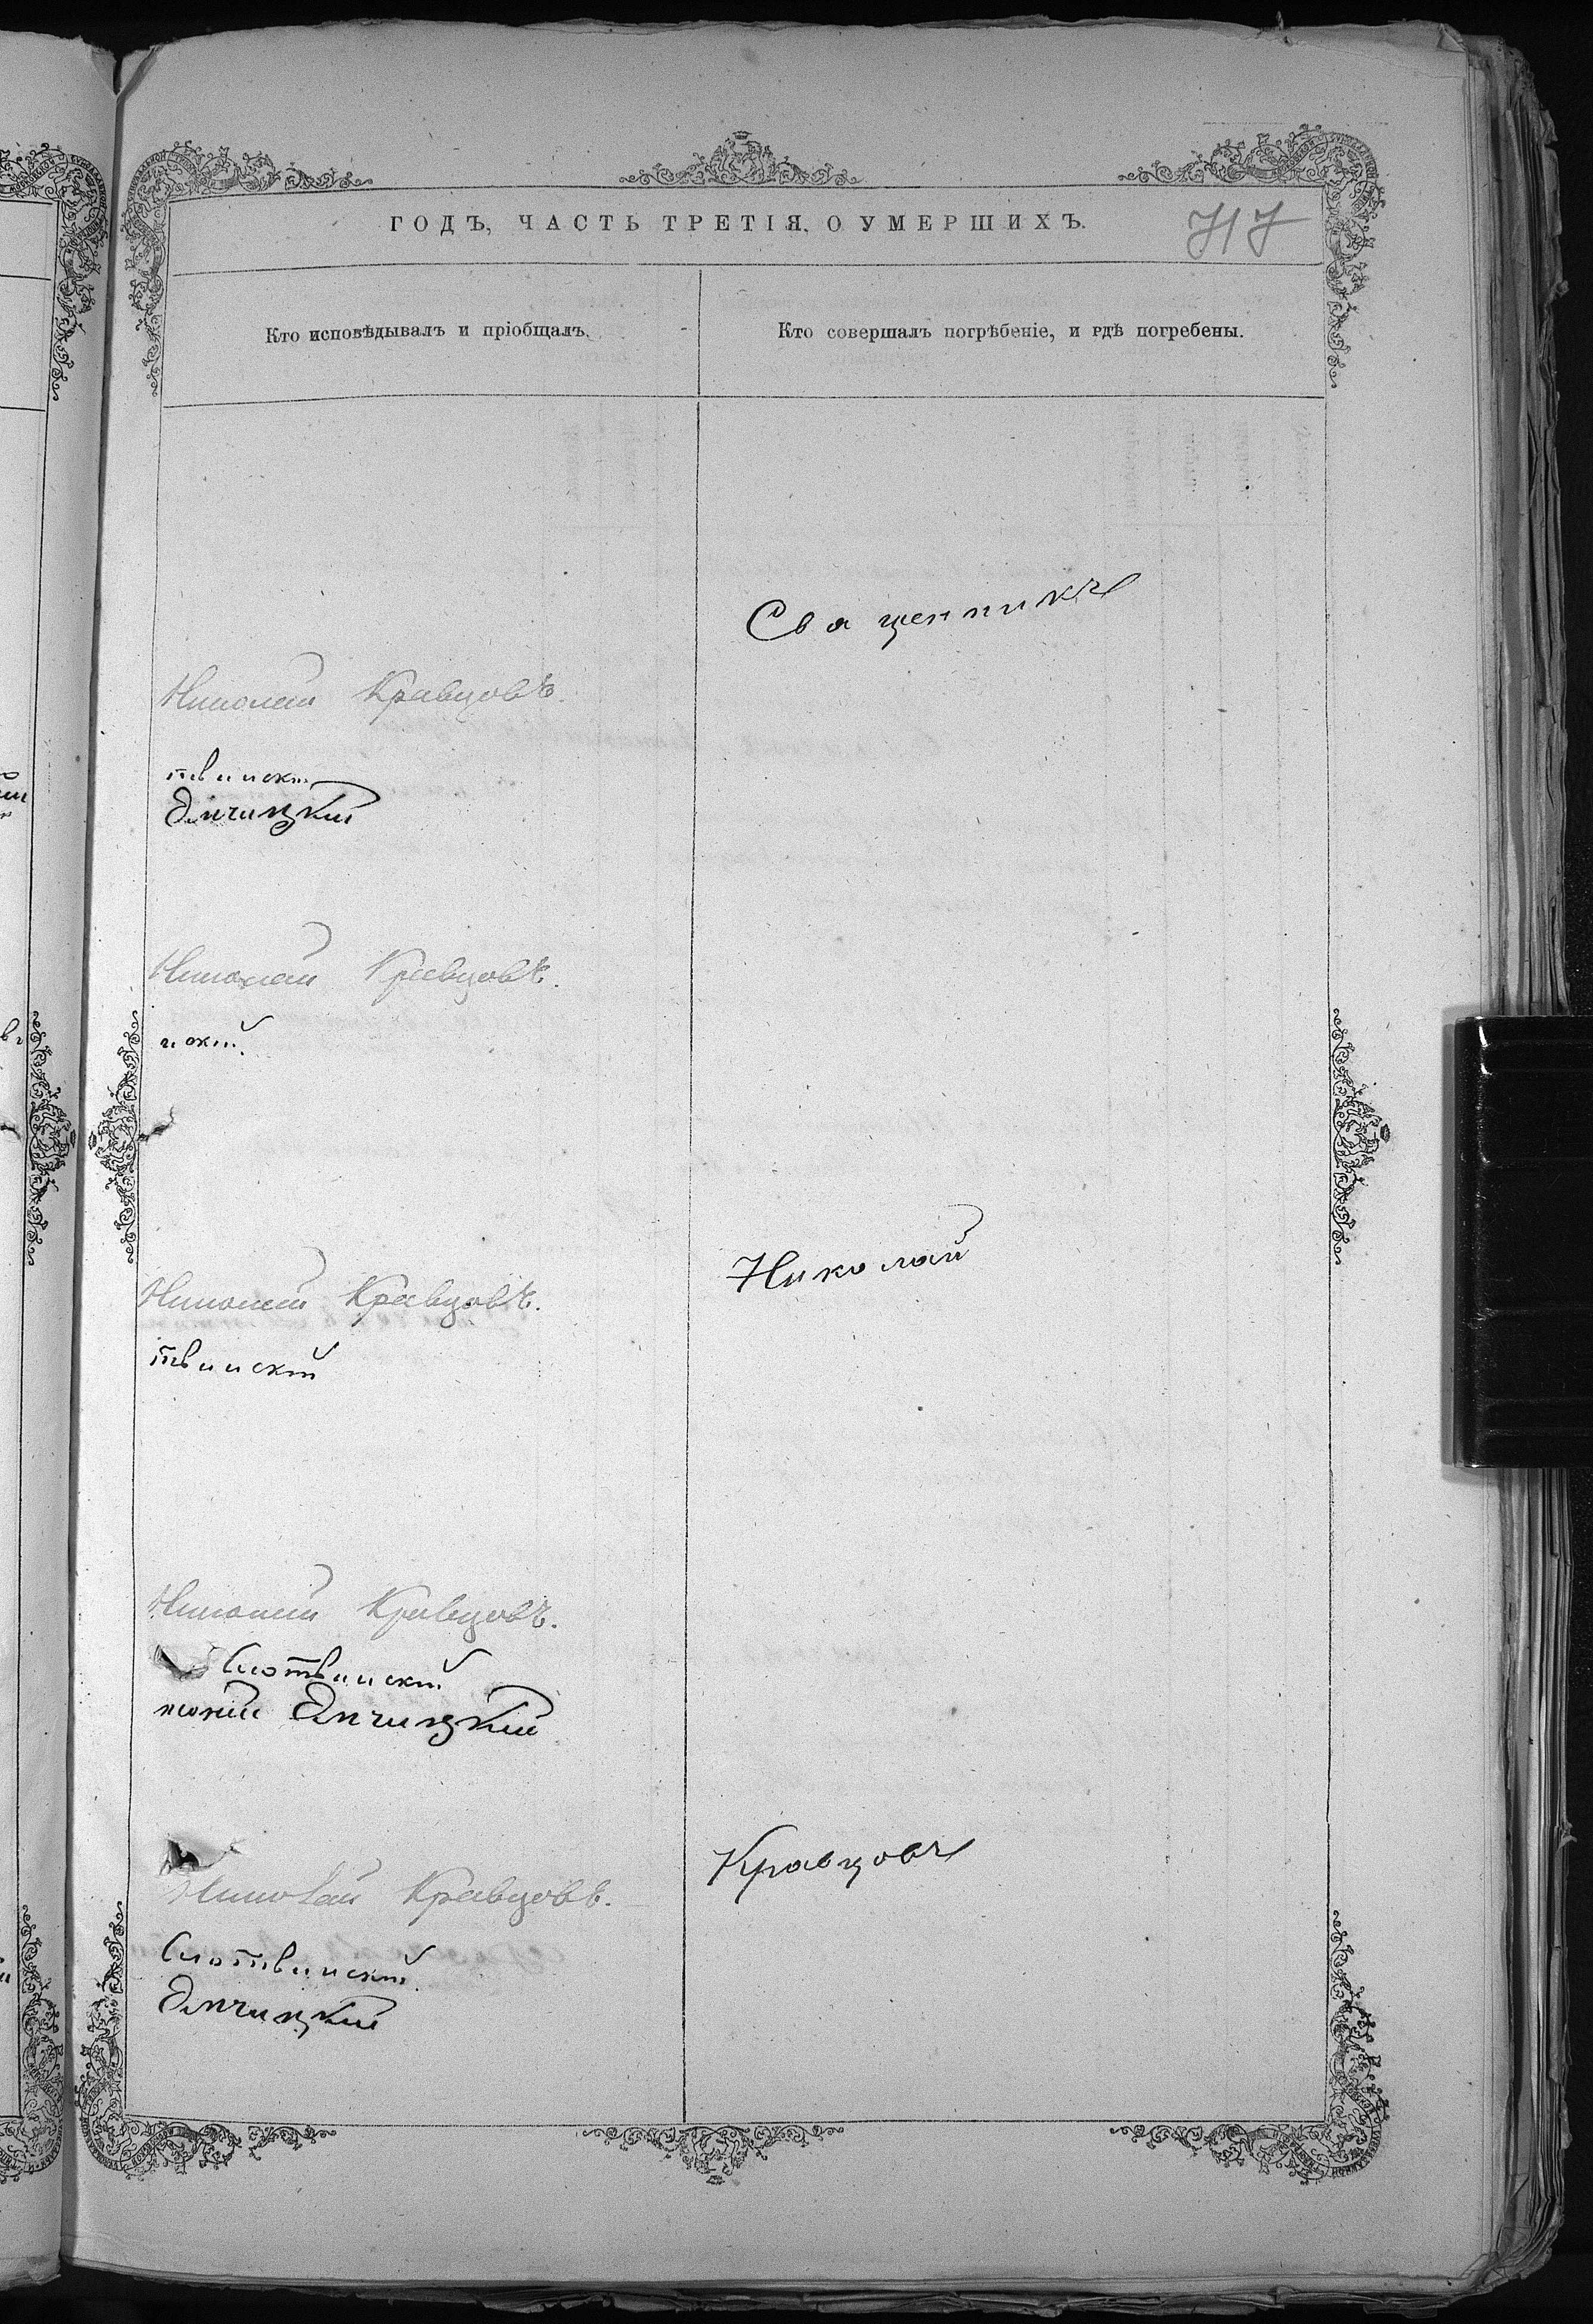 ГОДЪ, ЧАСТЬ ТРЕТІЯ, О УМЕРШИХЪ.
717
Кто исповѣдывалъ и пріобщалъ.
Кто совершалъ погрѣбеніе, и гдѣ погребены.
Священникъ
Николай Кравцовъ.
твинскій
Ямчицкій
Николай Кравцовъ.
нскій
Николай
Николай Кравцовъ.
твинскій
Николай Кравцовъ.
Слотвинскій
Ямчицкій
Кравцовъ
Николай Кравцовъ.
Слотвинскій
Ямчицкій